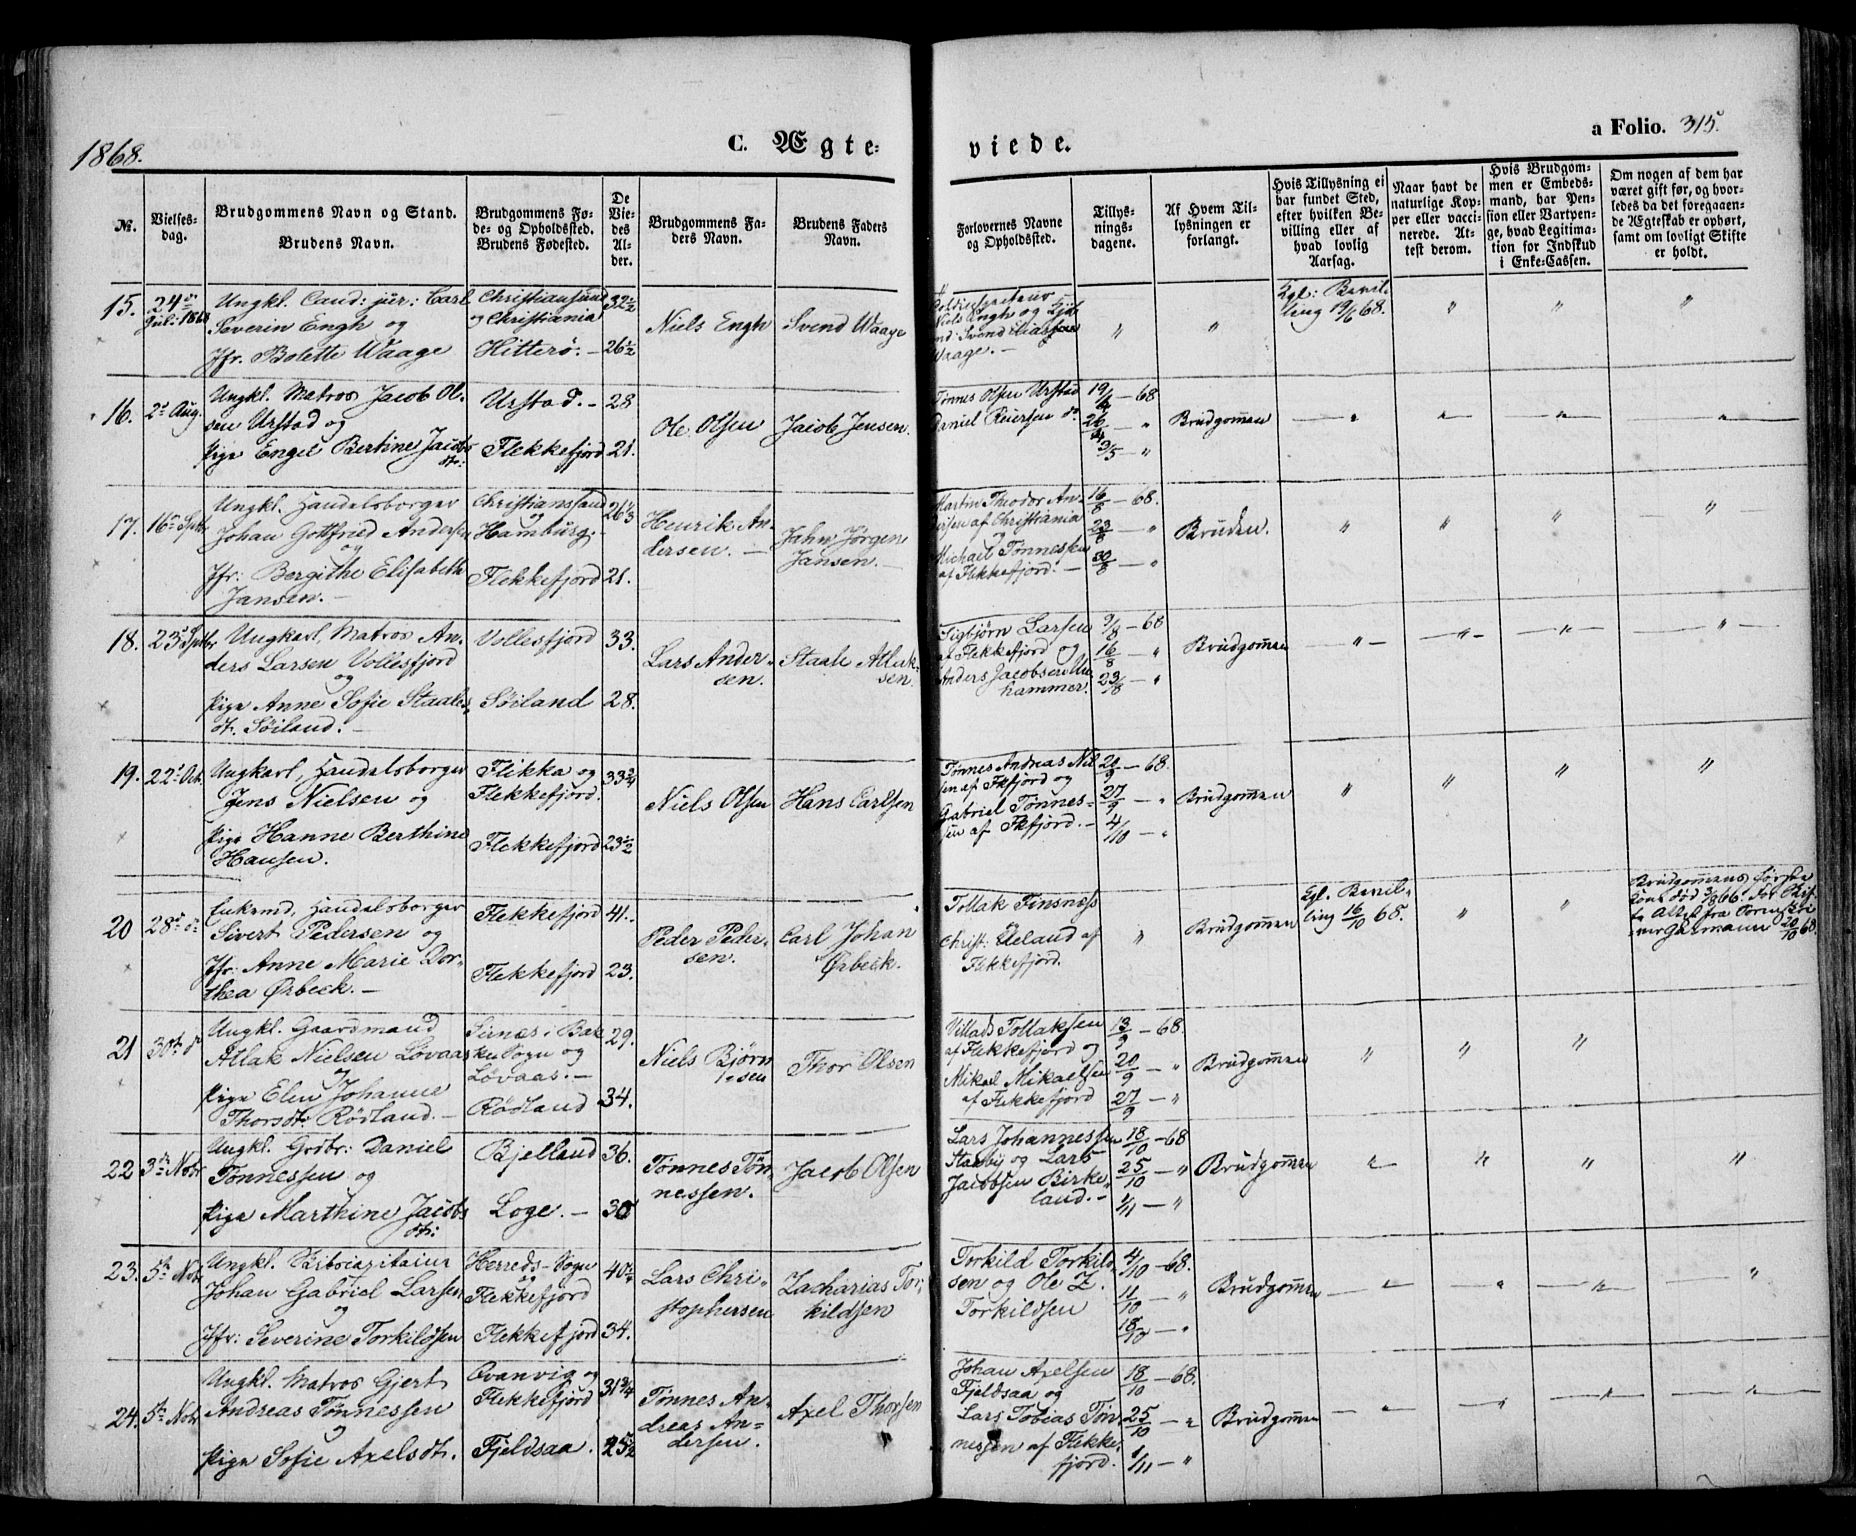 1868.
C. Ægte-
viede.
a Folio. 315.
No.
Vielses-
dag.
Brudgommens Navn og Stand.
Brudens Navn.
Brudgommens Fø-
de- og Opholdssted.
Brudens Fødested.
De
Vie-
des
Al-
der.
Brudgommens Fa-
ders Navn.
Brudens Faders
Navn.
Forlovernes Navne
og Opholdssted.
Tillys-
nings-
dagene.
Af Hvem Til-
lysningen er
forlangt.
Hvis Tillysning ei
har fundet Sted,
efter hvilken Be-
villing eller af
hvad lovlig
Aarsag.
Naar havt de
naturlige Kop-
per eller vacci-
nerede. At-
test derom.
Hvis Brudgom-
men er Embeds-
mand, har Pen-
sion eller Vartpen-
ge, hvad Legitima-
tion for Indskud
i Enke-Cassen.
Om nogen af dem har
været gift før, og hvor-
ledes da det foregaaen-
de Ægteskab er ophørt,
samt om lovligt Skifte
er holdt.
15.
24de
Juli 1868
Ungkl. Cand: jur: Carl
Severin Engh og
Jfr. Bolette Waage
Christiansund
og Christiania
Hitterø. –
32½
26½
Niels Engh
Svend Waage
Niels Engh og
Svend
Waage. –
"
"
Kgl: Bevil-
ling 19/6 68.
"
"
"
16.
2d Aug.
Ungkl. Matros Jacob Ol-
sen Urstad og
Pige Engel Bertine Jacobs
dt:
Urstad. –
Flekkefjord
28
21.
Ole Olsen
Jacob Jensen.
Tønnes Olsen Urstad
Daniel Reiersen do.
19/4 – 68
26/4 – "
3/5 – "
Brudgommen
17.
16de Septbr
Ungkl. Handelsborger
Johan Gottfried Andersen
og
Jfr: Bergithe Elisabeth
Jansen. –
Christianssand
og
Hamburg. –
Flekkefjord
26⅓
21.
Henrik An-
dersen. –
Jahn Jørgen
Jansen. –
Martin Theodor An-
dersen af Christiania
og
Michael Tønnessen
af Flekkefjord. –
16/8 – 68.
23/8 – "
30/8 – "
Bruden.
"
"
"
"
18.
23d Septbr
Ungkarl, Matros An-
ders Larsen Vollesfjord
og
Pige Anne Sofie Staales
dt. Søiland.
Vollesfjord
Søiland
33.
28.
Lars Ander-
sen.
Staale Atlak-
sen.
Sigbjørn Larsen
af Flekkefjord og
Anders Jacobsen
hammer.
9/8 – 68
16/8 – "
23/8 – "
Brudgommen
19.
22d Oct.
Ungkarl, Handelsborger
Jens Nielsen og
Pige Hanne Berthine
Hansen.
Flikka og
Flekkefjord.
Flekkefjord
33¾
23½
Niels Olsen
Hans Carlsen
Tønnes Andreas Niel
sen af Fkfjord og
Gabriel Tønnes-
sen af Fkfjord. –
20/9 – 68.
27/9 – "
4/10 – "
Brudgommen
"
"
"
"
20
28d do
Enkemd, Handelsborger
Sivert Pedersen og
Jfr: Anne Marie Dor-
thea Ørbeck. –
Flekkefjord
Flekkefjord
41.
23.
Peder Peder-
sen.
Carl Johan
Ørbeck.
Tollak Tinsnæss
og
Christ: Ueland af
Flekkefjord.
"
Brudgommen
Kgl. Bevil-
ling 16/10 68.
"
"
Brudgommens første
Kone død 3/8 66.
20/10 68
21
30te do
Ungkl. Gaardmand
Atlak Nielsen Lövaas
og
Pige Elen Johanne
Thorsdt. Rödland. –
Sirnæs i Bak
ke Sogn og
Lövaas. –
Rödland
29.
34.
Niels Bjørn
sen
Thor Olsen
Villads Tollaksen
af Flekkefjord og
Mikael Mikaelsen
af Flekkefjord
13/9 – 68.
20/9 – "
27/9 – "
Brudgommen
"
"
"
"
22
3de Novbr
Ungkl. Grdbr: Daniel
Tønnessen og
Pige Marthine Jacobs
dt:
Bjelland
Loge. –
36.
30
Tønnes Tøn-
nessen.
Jacob Olsen
Lars Johannessen
Stareby og Lars
Jacobsen Birke-
land. –
18/10 – 68
25/10 – "
1/11 – "
Brudgommen
23.
5te Novbr
Ungkl.
Johan Gabriel Larsen
og
Jfr: Severine Torkildsen
Herreds-Sogn
og
Flekkefjord
Flekkefjord
40½
34.
Lars Chri-
stophersen
Zacharias Tor
kildsen
Torkild Torkild-
sen og Ole Z.
Torkildsen
4/10 – 68.
11/10 – "
18/10 – "
Brudgommen
24.
5te Novbr
Ungkl. Matros Gjert
Andreas Tønnessen
og
Pige Sofie Axelsdt.
Qvanvig og
Flekkefjord
Fjeldsaa.
31¾
25½
Tønnes An-
dreas An-
dersen.
Axel Thorsen
Johan Axelsen
Fjeldsaa og
Lars Tobias Tøn-
nessen af Flekke-
fjord.
18/10 – 68.
25/10 – "
1/11 – "
Brudgommen